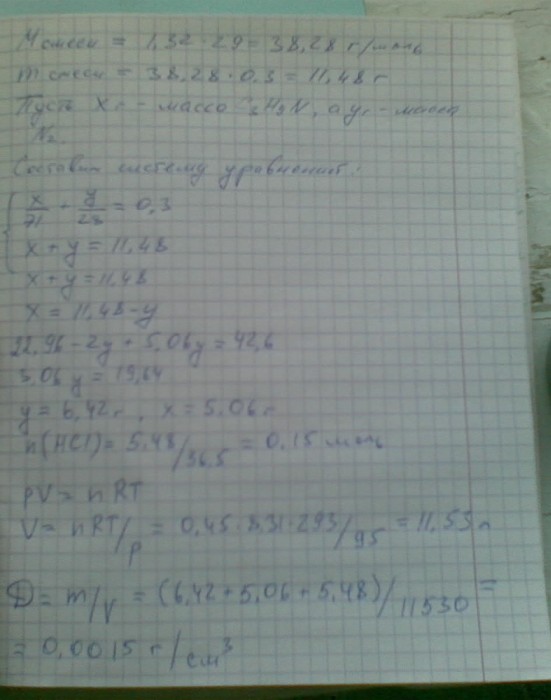 M смеси = 1,32 · 29 = 38,28 г/моль
m смеси = 38,28 · 0,3 = 11,48 г
Пусть x г - масса C₄H₉N, а y г - масса
N₂.
Составим систему уравнений:
x/71 + y/28 = 0,3
x + y = 11,48
x + y = 11,48
x = 11,48 - y
22,96 - 2y + 5,06y = 42,6
3,06 y = 19,64
y = 6,42 г, x = 5,06 г
n(HCl) = 5,48/36,5 = 0,15 моль
pV = nRT
V = nRT/p = 0,45 · 8,31 · 293/95 = 11,53 л
D = m/V = (6,42 + 5,06 + 5,48)/11530 =
= 0,0015 г/см³